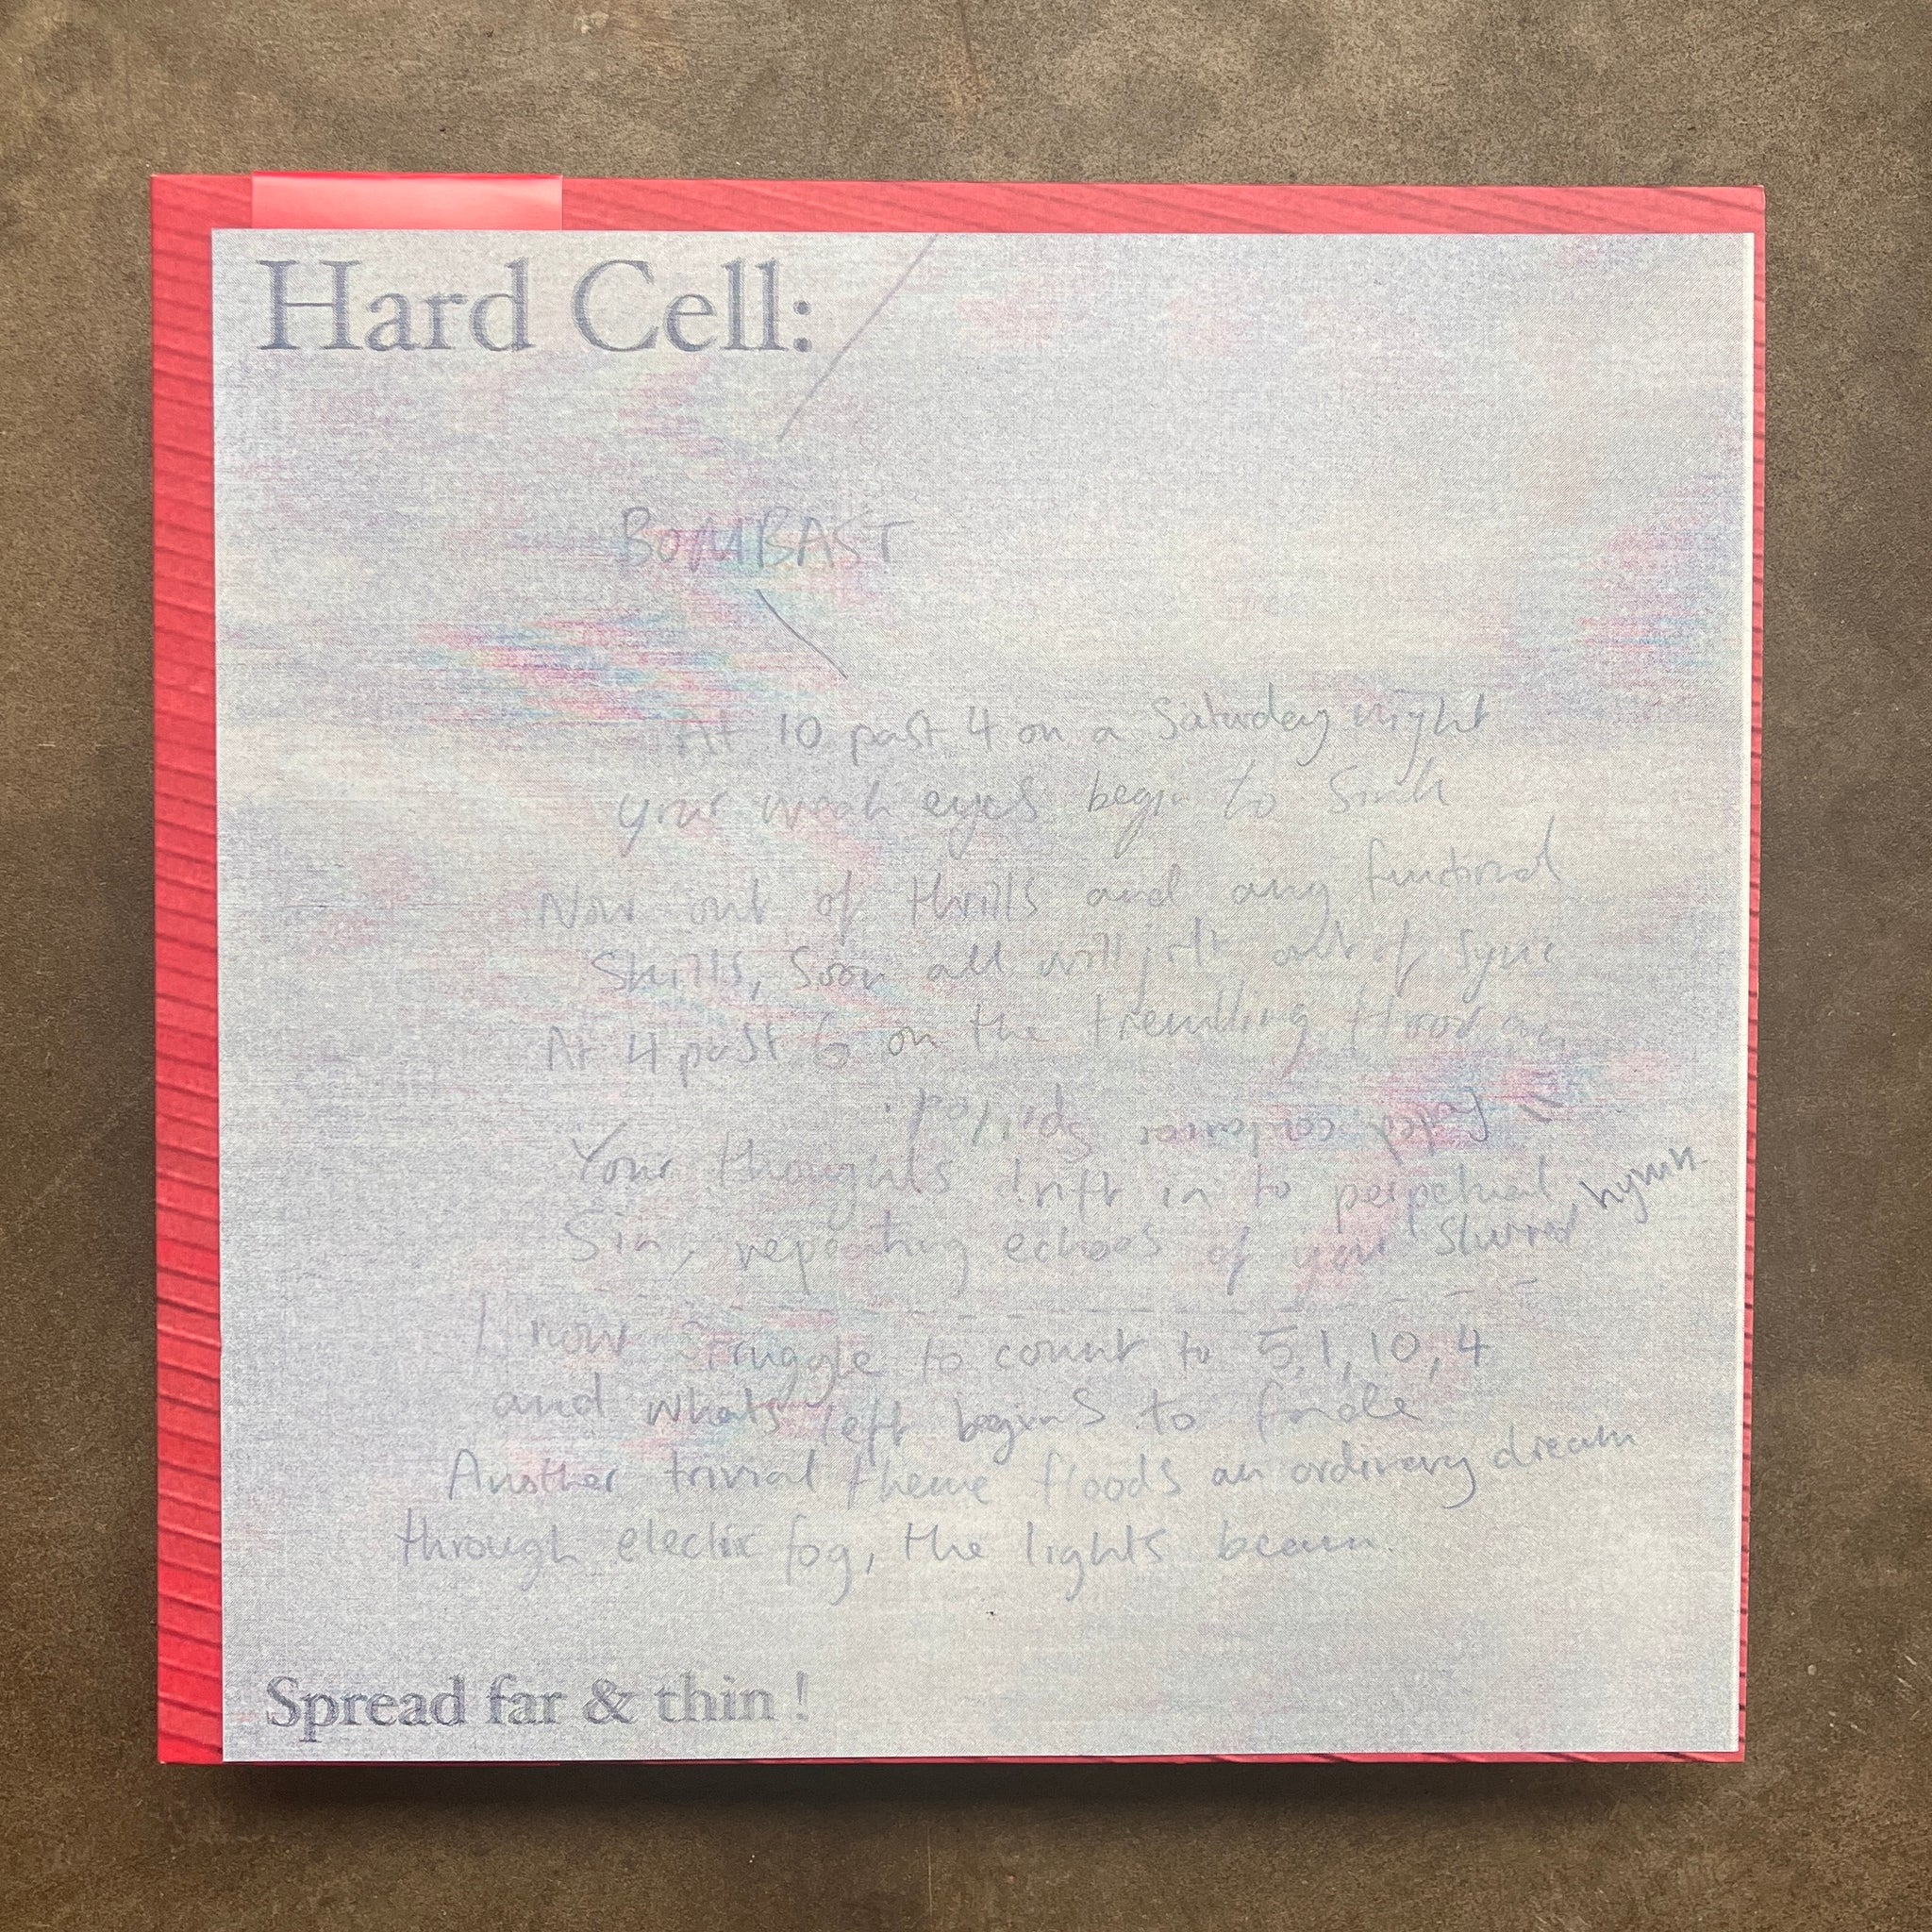 Hard Cell:
BOMBAST
At 10 past 4 on a Saturday night
your weak eyes begin to sink
Now out of thrills and any functional
Skills, Soon all will jolt out of sync
At 4 past 6 on the trembling
spilled.
Your thoughts drift in to perpetual
Sin, repeating echoes of your slurred hymn
I now struggle to count to 5, 1, 10, 4
and whats left begins to fade
Another trivial theme floods an ordinary dream
through electric fog, the lights beam.
Spread far & thin!